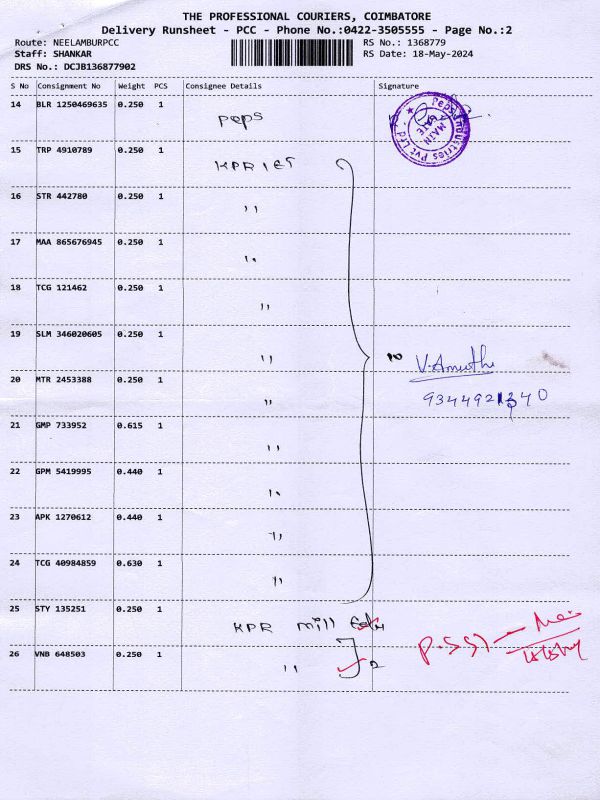 THE PROFESSIONAL COURIERS, COIMBATORE
Delivery Runsheet - PCC - Phone No.:0422-3505555 - Page No.:2
Route: NEELAMBURPCC RS No.: 1368779
Staff: SHANKAR RS Date: 18-May-2024
DRS No.: DCJB136877902
S No Consignment No Weight PCS Consignee Details Signature
14 BLR 1250469635 0.250 1 Peps
Peps Industries Pvt Ltd
MAIN GATE
15 TRP 4910789 0.250 1 KPRIET
16 STR 442780 0.250 1 ,,
17 MAA 865676945 0.250 1 ,,
18 TCG 121462 0.250 1 ,,
19 SLM 346020605 0.250 1 ,, 10 V.Amutha
20 MTR 2453388 0.250 1 ,, 9344921340
21 GMP 733952 0.615 1 ,,
22 GPM 5419995 0.440 1 ,,
23 APK 1270612 0.440 1 ,,
24 TCG 40984859 0.630 1 ,,
25 STY 135251 0.250 1 KPR mill
26 VNB 648503 0.250 1 ,, 2